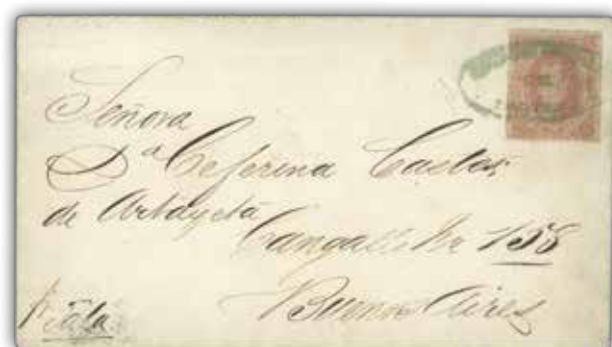 Señora
Dª Ceferina Castos
de Artayeta
Cangallo Nr 158
Buenos Aires